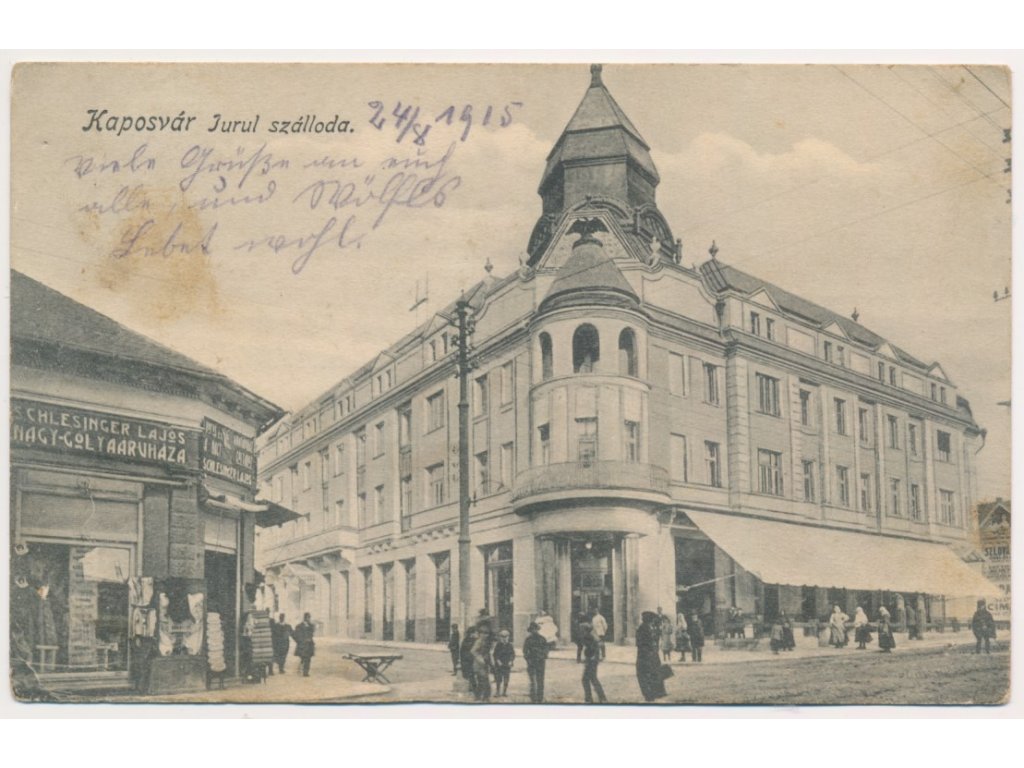 Kaposvár Turul szálloda. 24/8 1915
viele Grüße an euch
alle, und Wölfls
Lebet wohl.
SCHLESINGER LAJOS
NAGY-GÓLYAÁRUHÁZA
SCHLESINGER LAJOS